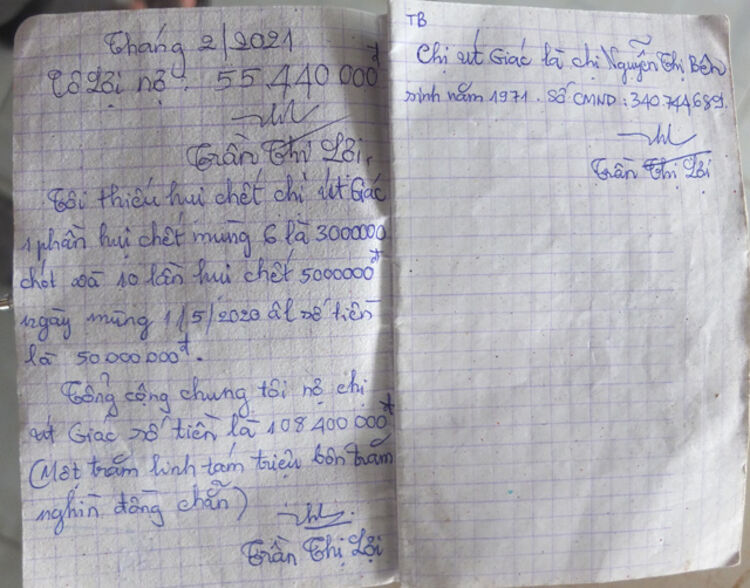 Tháng 2/2021
Cô Lợi nợ : 55.440 000đ
Trần Thị Lợi,
Tôi thiếu hụi chết chị Út Giác
1 phần hụi chết mùng 6 là 3000000
chót và 10 lần hụi chết 5000000đ
ngày mùng 1/5/2020 âl số tiền
là 50 000 000đ.
Tổng cộng chung tôi nợ chị
Út Giác số tiền là 108 400 000đ
(Một trăm linh tám triệu bốn trăm
nghìn đồng chẵn)
Trần Thị Lợi
TB
Chị Út Giác là chị Nguyễn Thị Bên
sinh năm 1971. Số CMND : 340744689.
Trần Thị Lợi